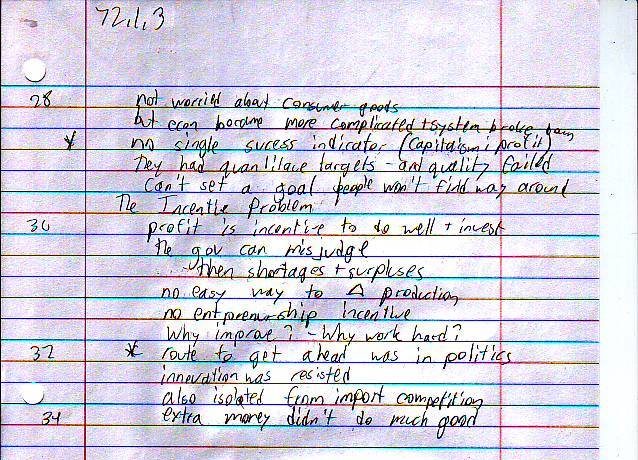 72,1,3
28 not worried about consumer goods
but econ became more complicated + system broke down
* no single sucess indicator (Capitalism: profit)
They had quantilave targets - and quality failed
Can't set a goal people won't find way around
The Incentive Problem
30 profit is incentive to do well + invest
the gov can misjudge
... then shortages + surpluses
no easy way to Δ production
no entprenurship incentive
Why improve? - Why work hard?
32 * route to get ahead was in politics
innovation was resisted
also isolated from import competition
34 extra money didn't do much good